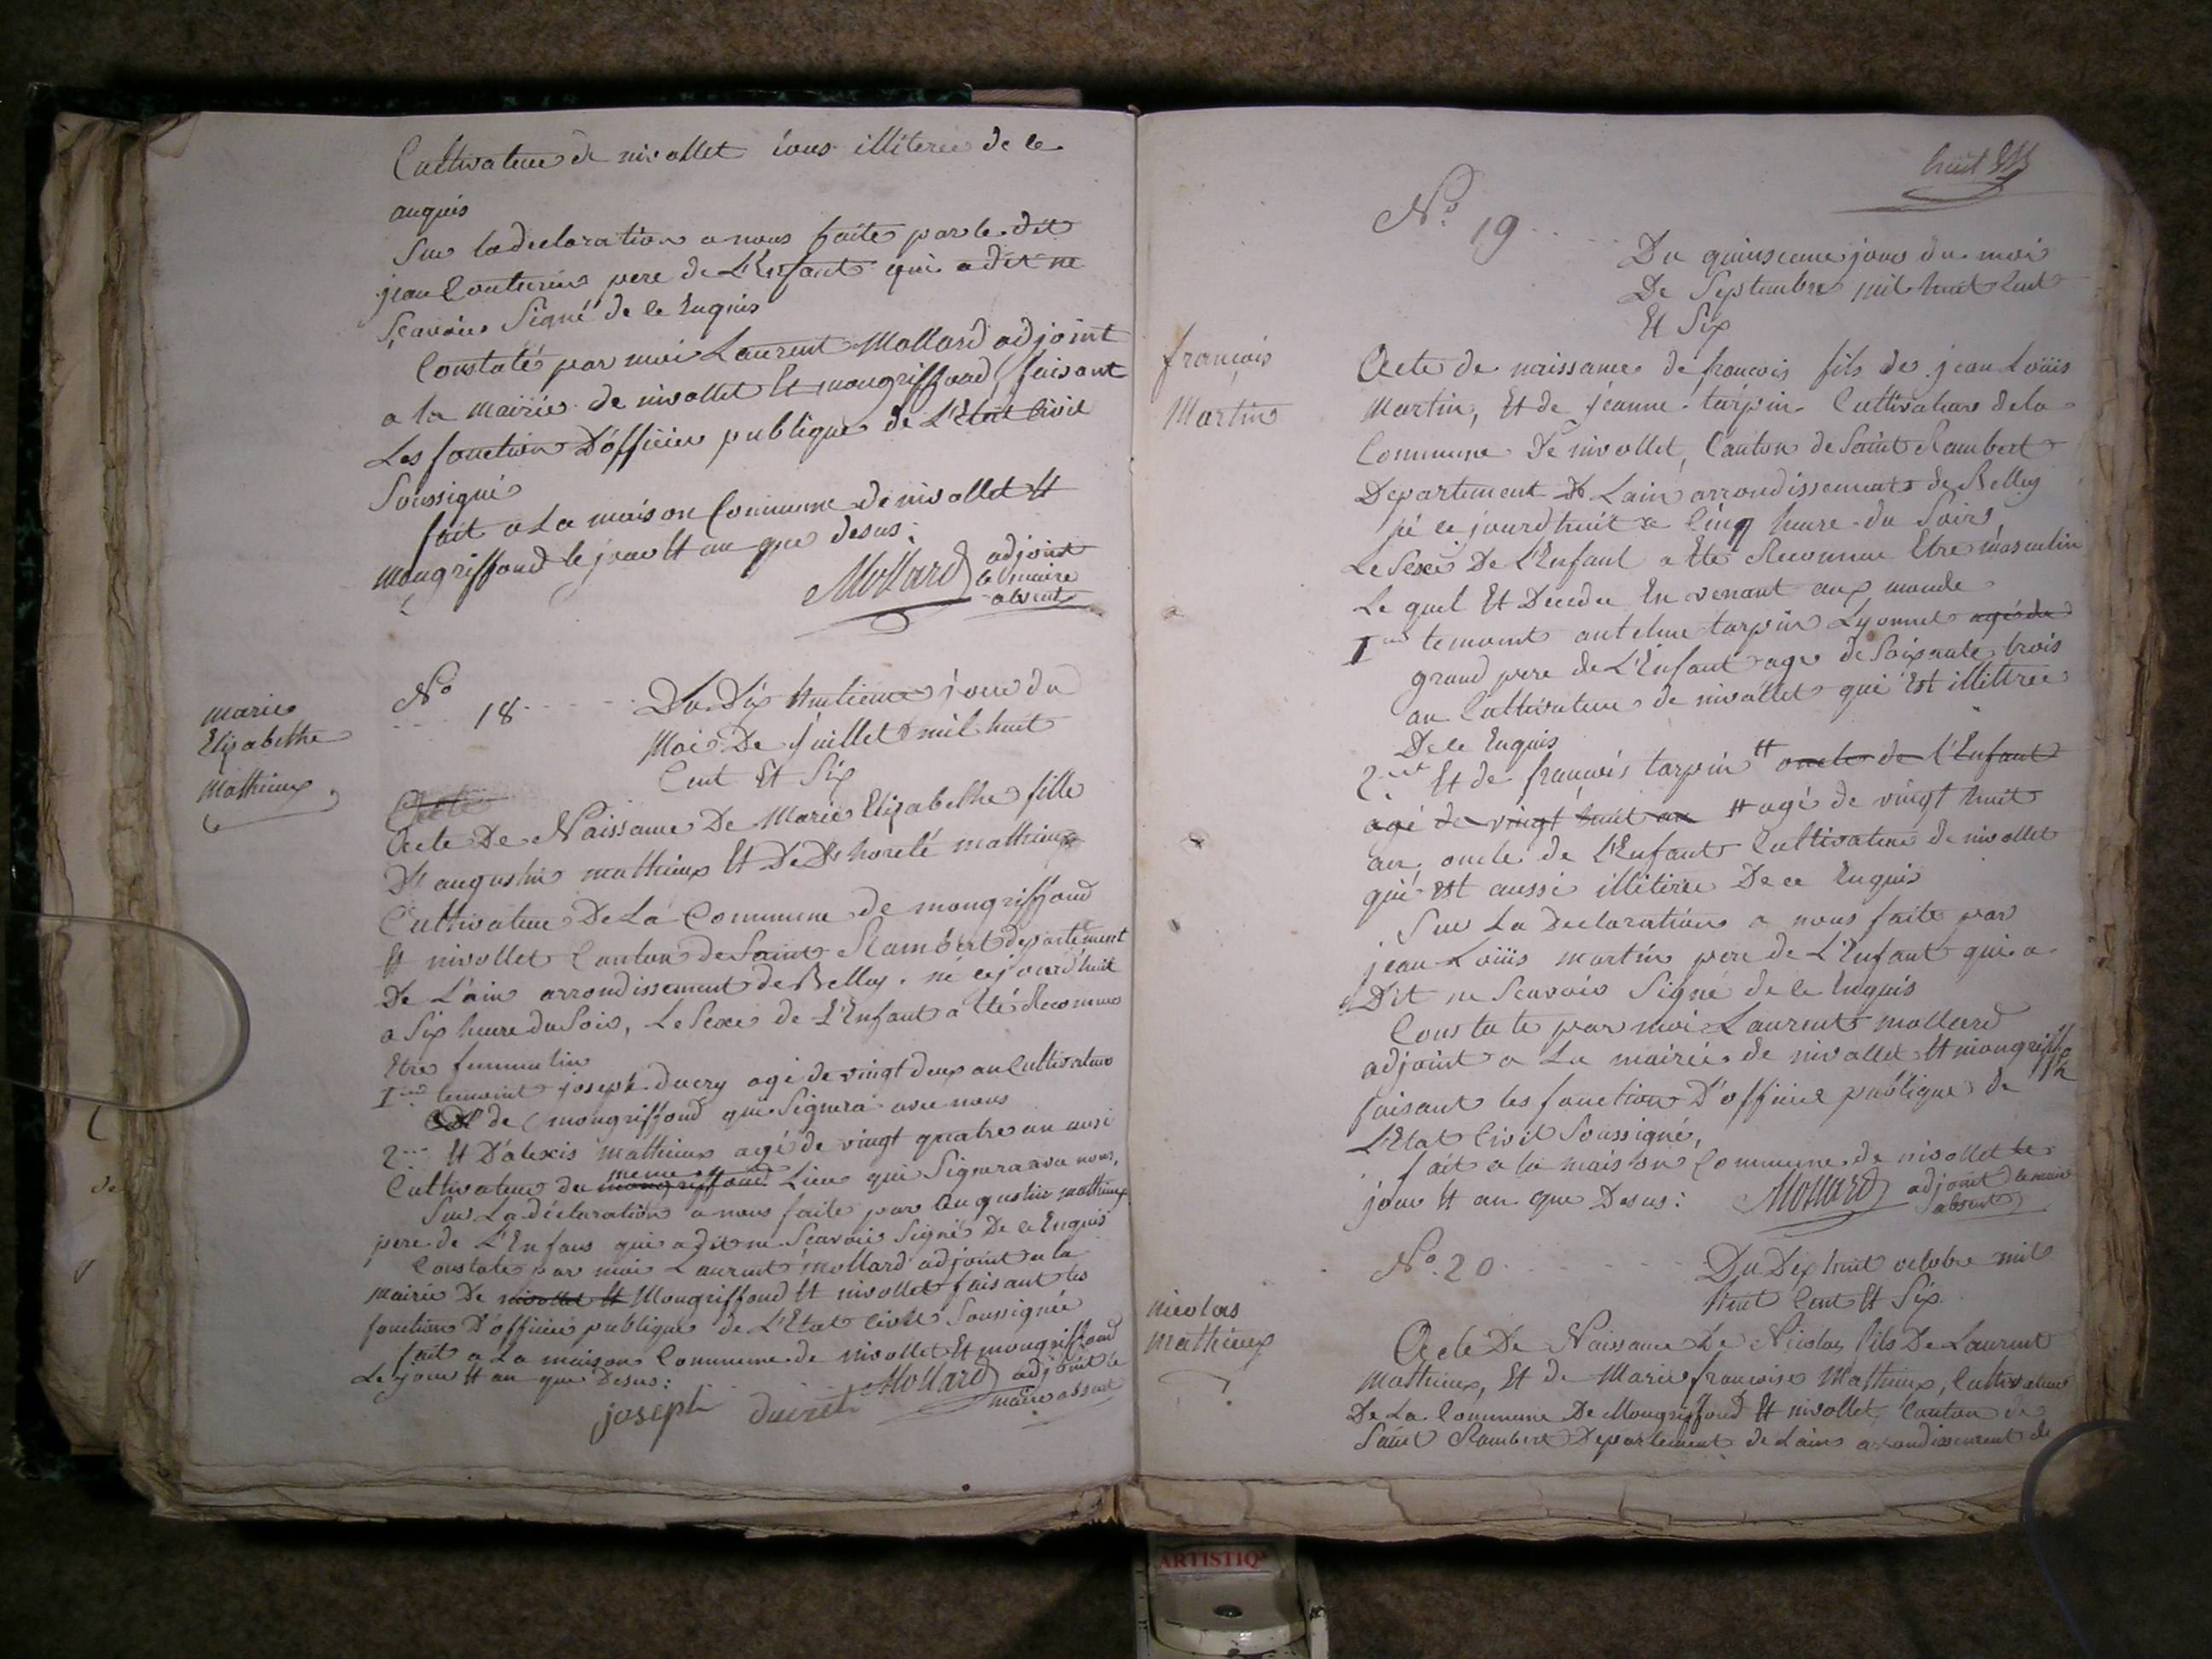 Cultivateur de nivollet tous illiteree de ce
anquis
Sur la declaration a nous faite par le dit
jean Couturier pere de L'Enfant qui a dit ne
Sçavoire Signé de ce Enquis
Constaté par moi Laurent Mollard adjoint
a la mairie de nivollet Et mongriffond faisant
Les fonction D'officier publique de L'Etat Civil
Soussigné
fait a La maison Commune de nivollet Et
mongriffond le jour Et an que desus:
Mollard adjoint
le maire
absent
marie
Elizabethe
Mathieux
No 18
Du Dix huitieme jour du
Moi De Juillet mil huit
Cent Et Six
Acte De Naissance De Marie Elizabethe fille
D'augustin mathieux Et De mathieux
Cultivateur De La Commune de mongriffond
Et nivollet Canton de Saint Rambert departement
De L'ain arrondissement de Belley. né cejourd'huit
a Six heure du Soir, Le Sexe de L'Enfant a Eté Reconnue
Etre femmulin
1er temoint joseph Ducry agé de vingt deux an Cultivateur
de mongriffond qui Signera avec nous
2me Et D'alexis Mathieux agé de vingt quatre an ausi
Cultivateur du meme Lieu qui Signera avec nous,
Sur La déclaration a nous faite par Augustin mathieux
pere de L'Enfans qui a dit ne Scavoire Signé De ce Enquis
Constaté par moi Laurent Mollard adjoint a la
mairie De nivollet Et Mongriffond Et nivollet faisant les
fonction D'officier publique de L'Etat Civil Soussignée
fait a La maison Commune de nivollet Et mongriffond
Le jour Et an que Desus:
joseph ducret Mollard adjoint le
maire absent
huit
No 19
Du quinsieme jour du moi
De Septembre mil huit Cent
Et Six
francois
Martin
Acte de naissance de francois fils de jean Loüis
Martin, Et de jeanne tarpin Cultivateur de la
Commune De nivollet, Canton de Saint Rambert
Departement De Lain arrondissement de Belley
né ce jourdhuit a Cinq heure du Soir,
Le Sexe De L'Enfant a Eté Reconnue Etre masculin
Le quel Et Decedee En venant aux monde
1er temoint antelme tarpin Lyonnet agé de
grand pere de L'Enfant age de Soixante trois
an Cultivateur de nivollet qui Est illittree
De ce Enquis
2me Et de françois tarpin # oncle de l'Enfant
agé de vingt huit an # agé de vingt huit
an, oncle de L'Enfant Cultivateur de nivollet
qui Est aussi illitiree De ce Enquis
Sur La Declaration a nous faite par
jean Loüis martin pere de L'Enfant qui a
Dit ne Scavoir Signé de ce Enquis
Constaté par moi Laurent mollard
adjoint a La mairie de nivollet Et mongriffo
faisant les fonction D'officiel publique de
L'Etat Civil Soussigné,
fait a la maison Commune de nivollet le
jour Et an que Desus: Mollard adjoint le maire
absent
No. 20
Du Dix huit octobre mil
huit Cent Et Six
nicolas
mathieux
Acte De Naissance De Nicolas fils De Laurent
Mathieux, Et de Marie francoise Mathieux, Cultivateur
De La Commune De Mongriffond Et nivollet Canton de
Saint Rambert Departement de Lain arrondissement de
ARTISTIQ